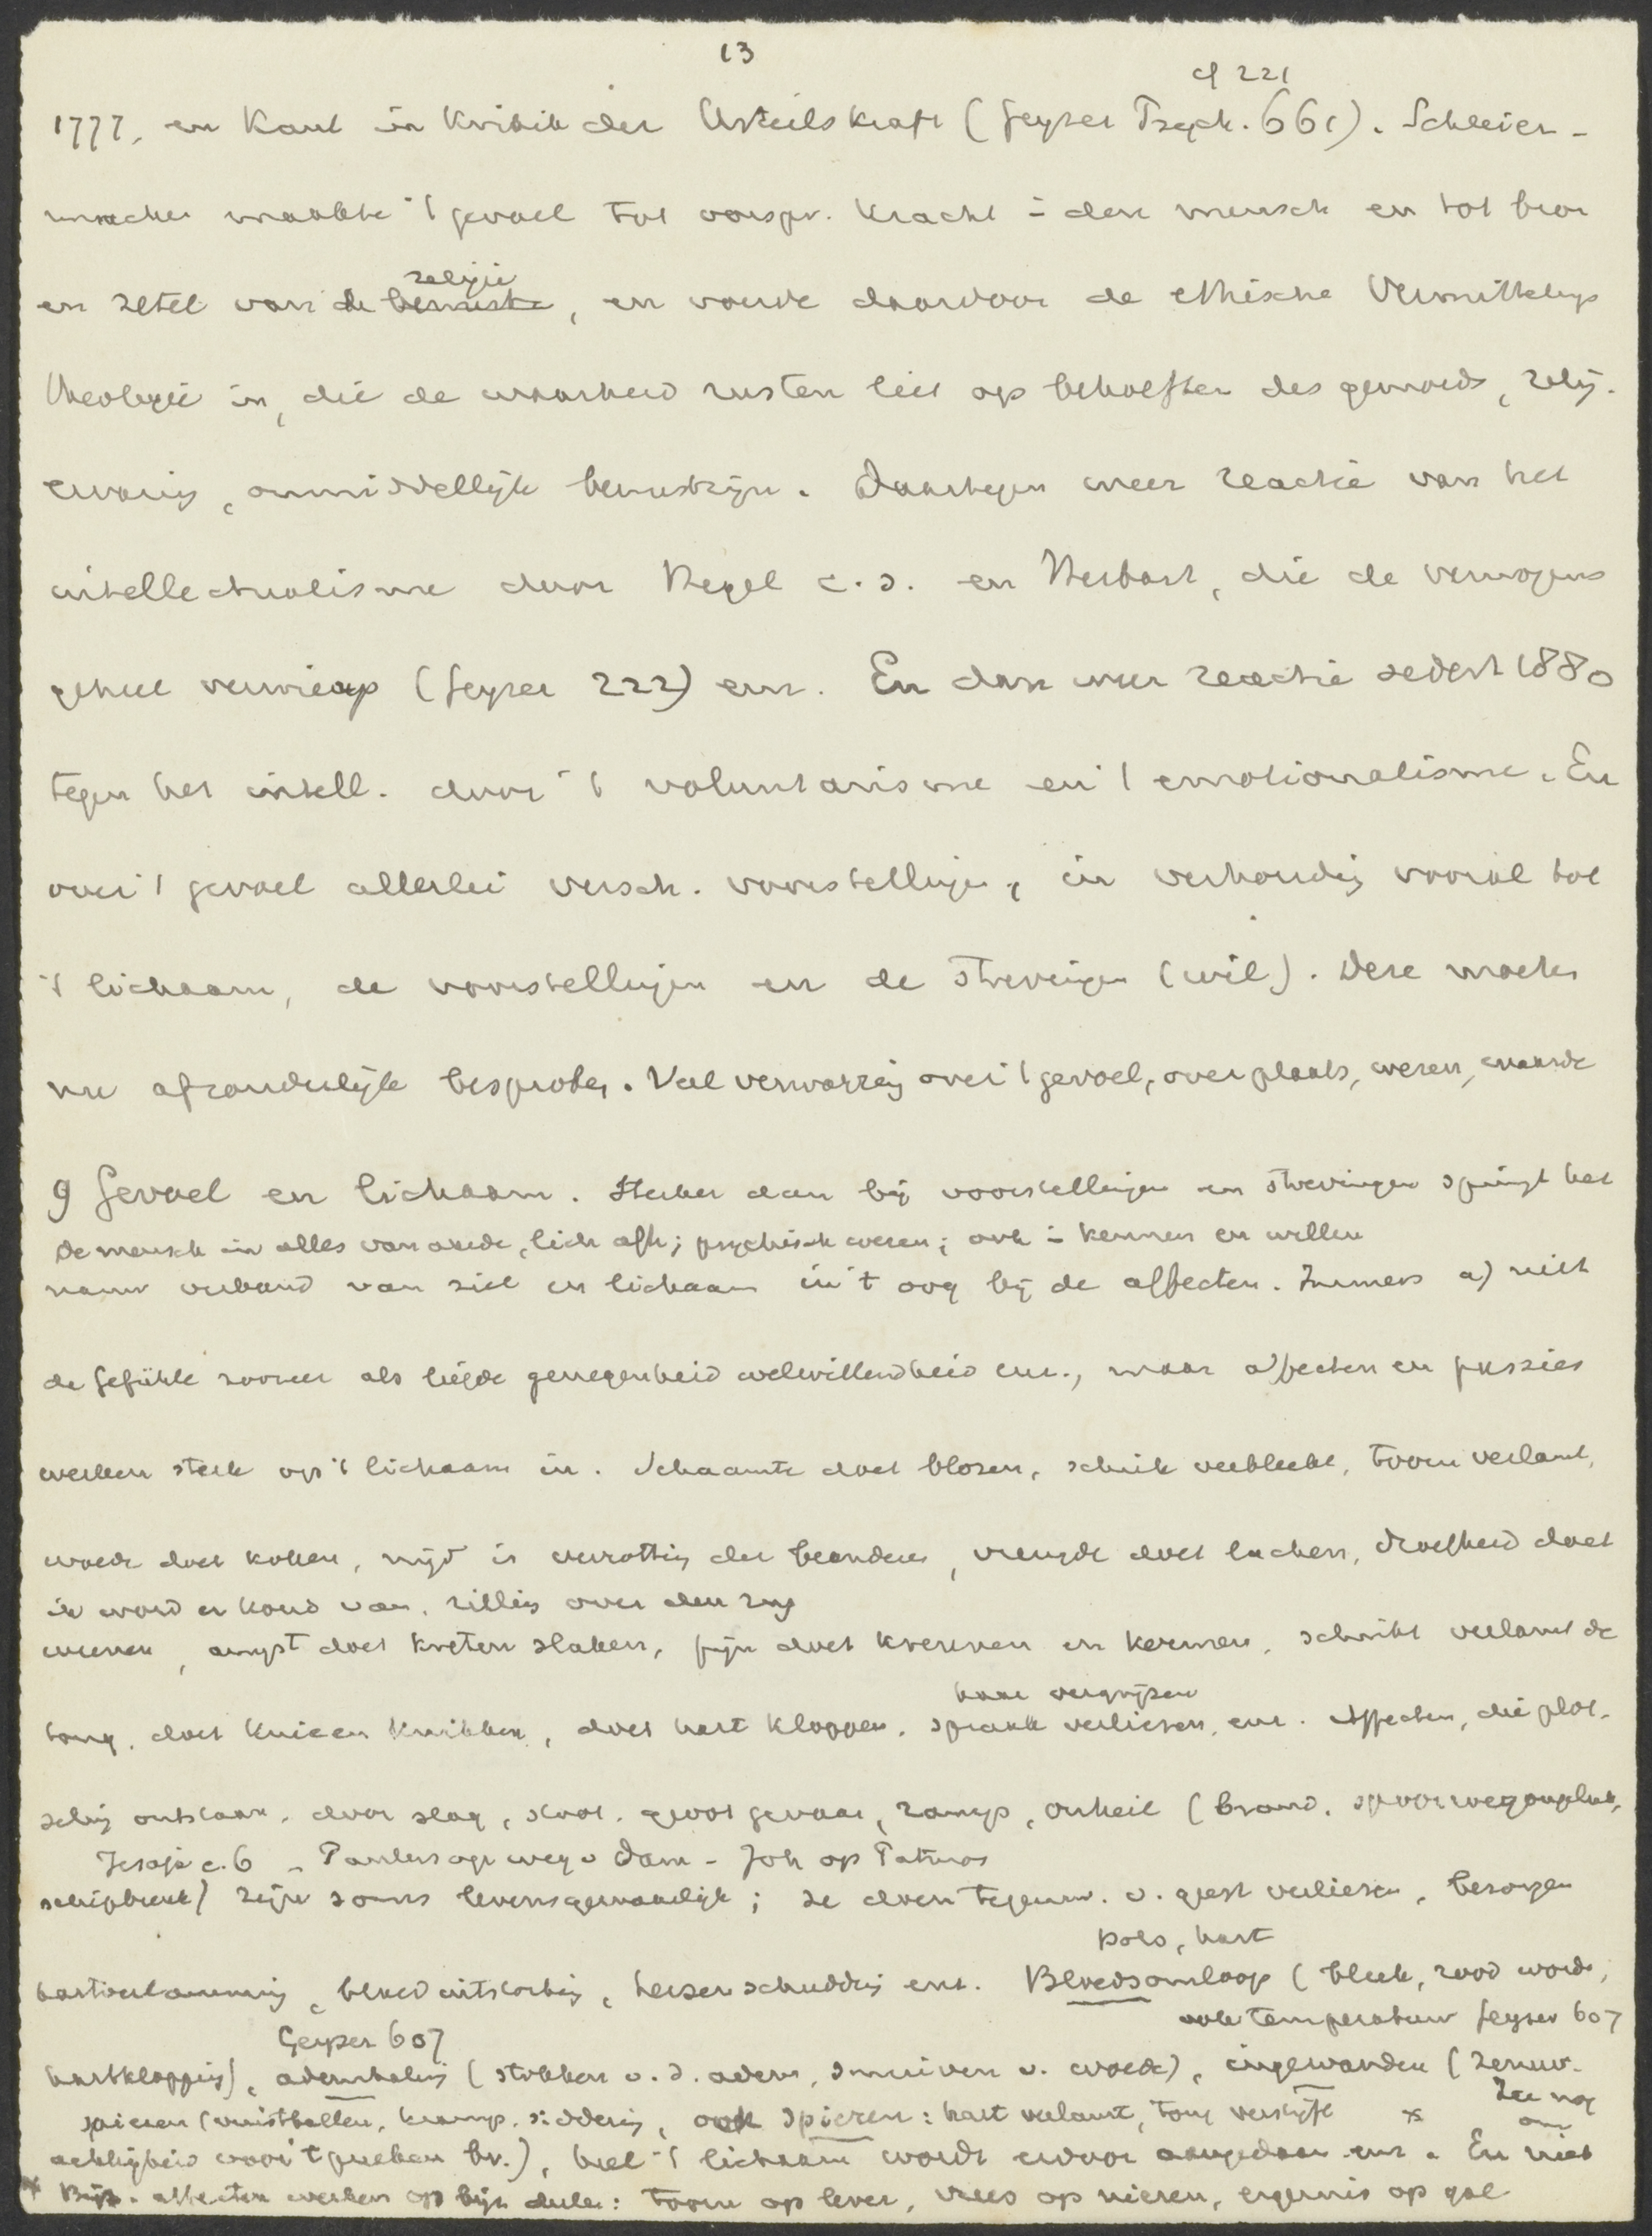 13
cf 221
1777, en Kant in Kritik der Urteilskraft (Geyser Psych. 661). Schleier-
macher maakte 't gevoel tot oorspr. kracht i. den mensch en tot bron
religie
en zetel van de bewuste, en voerde daardoor de ethische Vermittelungs
theologie in, die de waarheid rusten liet op behoeften des gemoeds, relig.
ervaring, onmiddellijk bewustzijn. Daartegen weer reactie van het
intellectualisme door Hegel c.s. en Herbart, die de vermogens
geheel verwierp (Geyser 222) enz. En dan weer reactie sedert 1880
tegen het intell. door 't voluntarisme en 't emotionalisme. En
over 't gevoel allerlei versch. voorstellingen, in verhouding vooral tot
't lichaam, de voorstellingen en de strevingen (wil). Deze moeten
nu afzonderlijk besproken. Veel verwarring over 't gevoel, over plaats, wezen, waarde
9 Gevoel en lichaam. Sterker dan bij voorstellingen en strevingen springt het
De mensch in alles van aarde, lich afh; psychisch wezen; ook i. kennen en willen
nauw verband van ziel en lichaam in 't oog bij de affecten. Immers a) niet
de Gefühle zoozeer als liefde genegenheid welwillendheid enz., maar affecten en passies
werken sterk op 't lichaam in. Schaamte doet blozen, schrik verbleekt, toorn verlamt,
woede doet koken, nijd is verrotting der beenderen, vreugde doet lachen, droefheid doet
ik word er koud van, rilling over den rug
weenen, angst doet kreten slaken, pijn doet krennen en kermen, schrik verlamt de
haar vergrijzen
tong, doet knieen knikken, doet hart kloppen, spraak verliezen, enz. Affecten, die plot-
seling ontstaan, door slag, stoot, groot gevaar, ramp, onheil (brand, spoorwegongeluk,
Jesaja c. 6 - Paulus op weg v Dam - Joh op Patmos
schipbreuk) zijn soms levensgevaarlijk; ze doen tegenw. v. geest verliezen, bezorgen
pols, hart
hartverlamming, bloeduitstorting, hersenschudding enz. Bloedsomloop (bleek, rood worden,
ook temperatuur Geyser 607
Geyser 607
hartklopping), ademhaling (stokken v. d. adem, snuiven v. woede), ingewanden (zenuw-
spieren (vuistballen, kramp, siddering, ook spieren: hart verlamt, tong verstijft * Zie nog om
achtigheid voor 't preeken bv.), heel 't lichaam wordt erdoor aangedaan enz. En niet
* Bijz. affecten werken op bijz. deelen: toorn op lever, vrees op nieren, ergernis op gal